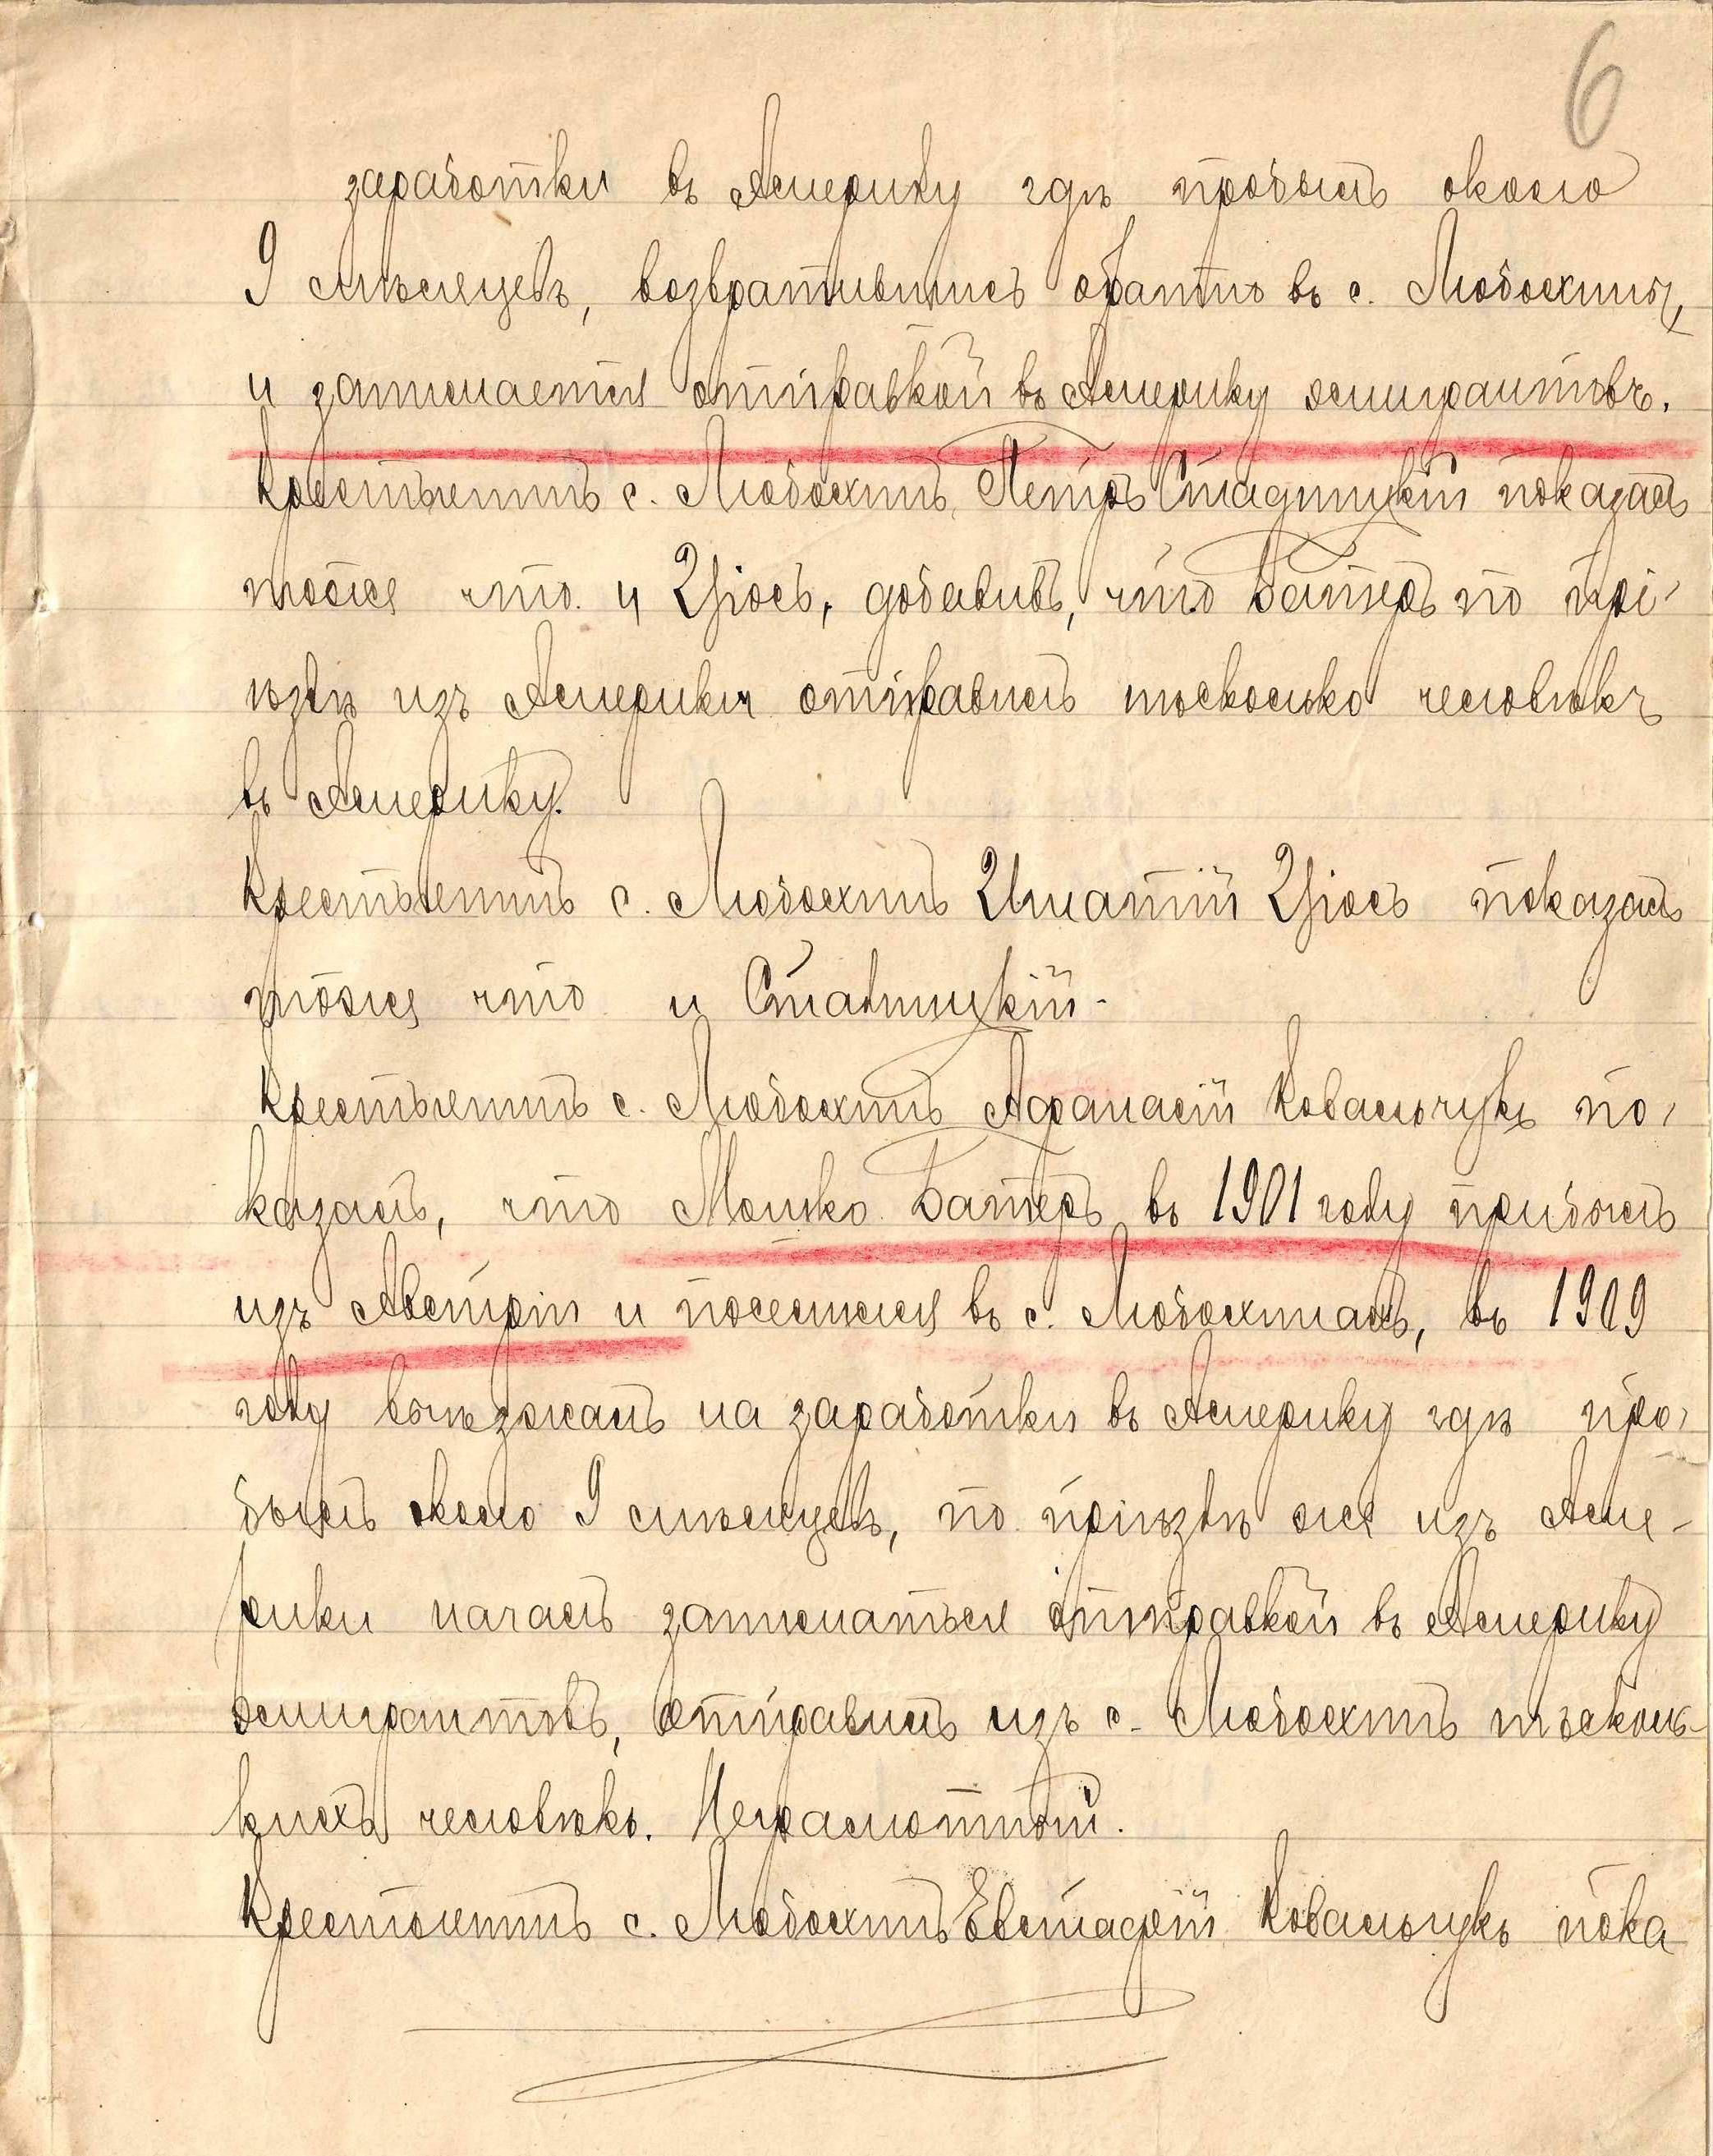 6
заработки въ Америку гдѣ пробылъ около
9 мѣсяцевъ, возвратившись обратно въ с. Любохины,
и занимается отправкой въ Америку эмигрантовъ.
Крестьянинъ с. Любохинъ Петръ Стадницкій показалъ
тоже что и Цюсь, добавивъ, что Батеръ по прі-
ѣздѣ изъ Америки отправилъ нѣсколько человѣкъ
въ Америку.
Крестьянинъ с. Любохинъ Игнатій Цюсь показалъ
тоже что и Ставницкій.
Крестьянинъ с. Любохинъ Афанасій Ковальчукъ по-
казалъ, что Мошко Батеръ въ 1901 году прибылъ
изъ Австріи и поселился въ с. Любохинахъ, въ 1909
году выѣзжалъ на заработки въ Америку гдѣ про-
былъ около 9 мѣсяцевъ, по пріѣздѣ же изъ Аме-
рики началъ заниматься отправкой въ Америку
эмигрантовъ, отправилъ изъ с. Любохинъ нѣсколь-
кихъ человѣкъ. Неграмотный.
Крестьянинъ с. Любохинъ Евстафій Ковальчукъ пока